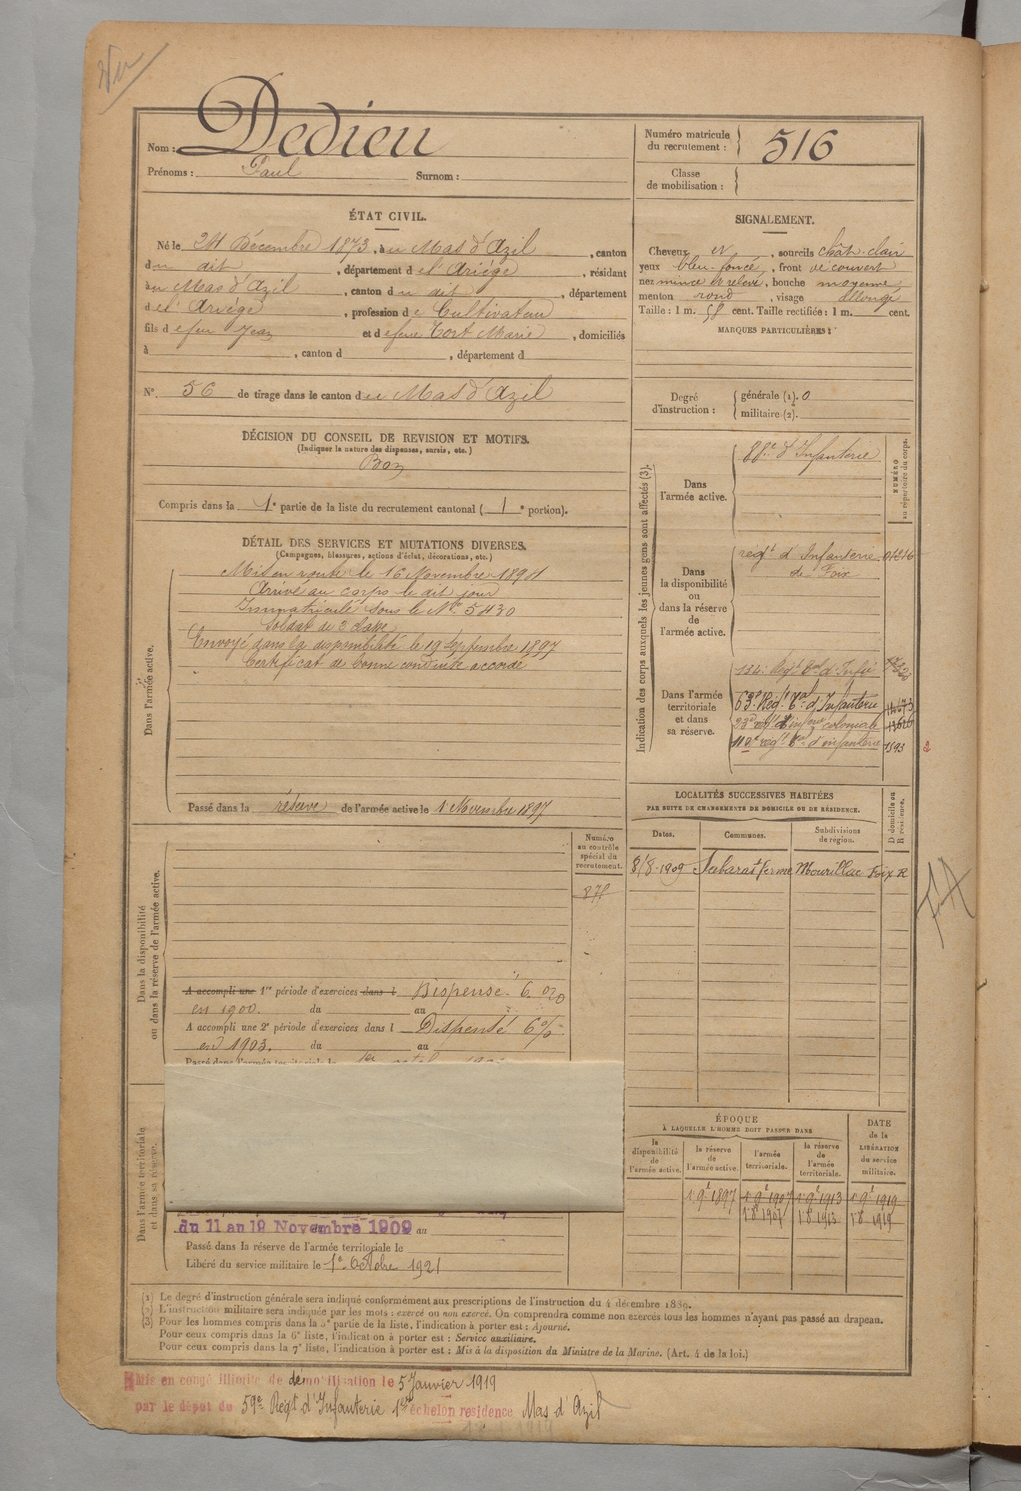 Nom : Dedieu
Prénoms : Paul Surnom :
Numéro matricule du recrutement : 516
Classe de mobilisation :
ÉTAT CIVIL.
Né le 24 Décembre 1873, à u Mas d'Azil, canton
du dit, département de l'Ariège, résidant
au Mas d'Azil, canton du dit, département
de l'Ariège, profession de Cultivateur
fils de feu Jean et de feue Tort Marie, domiciliés
à , canton d , département d
SIGNALEMENT.
Cheveux et, sourcils chât-clair
yeux bleu-foncé, front découvert
nez mince et relevé, bouche moyenne
menton rond, visage allongé
Taille : 1 m. 58 cent. Taille rectifiée : 1 m. cent.
MARQUES PARTICULIÈRES :
N° 56 de tirage dans le canton du Mas d'Azil
DÉCISION DU CONSEIL DE REVISION ET MOTIFS.
(Indiquer la nature des dispenses, sursis, etc.)
Bon
Compris dans la 1e partie de la liste du recrutement cantonal ( 1 e portion).
Degré d'instruction :
générale (1). 0
militaire (2).
DÉTAIL DES SERVICES ET MUTATIONS DIVERSES.
(Campagnes, blessures, actions d'éclat, décorations, etc.)
Dans l'armée active.
Mis en route le 16 Novembre 1894
Arrivé au corps le dit jour
Immatriculé sous le No 5430
Soldat de 2 classe
Envoyé dans la disponibilité le 19 Septembre 1897
Certificat de bonne conduite accordé
Passé dans la réserve de l'armée active le 1 Novembre 1897
Indication des corps auxquels les jeunes gens sont affectés (3).
NUMÉRO au répertoire du corps.
Dans l'armée active.
88e d'Infanterie
Dans la disponibilité ou dans la réserve de l'armée active.
régt d'Infanterie
de Foix
Dans l'armée territoriale et dans sa réserve.
134e Régt tal d'Infie
63e Régt tal d'Infanterie
colonial
régt tal d'infanterie 1593
2
LOCALITÉS SUCCESSIVES HABITÉES
PAR SUITE DE CHANGEMENTS DE DOMICILE OU DE RÉSIDENCE.
Dates. Communes. Subdivisions de région. D domicile ou R résidence.
8/8-1909 Sabarat ferme Mourillac Foix R
Dans la disponibilité ou dans la réserve de l'armée active.
Numéro au contrôle spécial du recrutement.
A accompli une 1re période d'exercices dans l Dispensé 6 0/0
en 1900. du au
A accompli une 2e période d'exercices dans l Dispensé 6 %
en 1903. du au
Passé dans l'armée territoriale le 1er
Dans l'armée territoriale et dans sa réserve.
du 11 au 19 Novembre 1909 au
Passé dans la réserve de l'armée territoriale le
Libéré du service militaire le 1er Octobre 1921
ÉPOQUE
À LAQUELLE L'HOMME DOIT PASSER DANS
la disponibilité de l'armée active. la réserve de l'armée active. l'armée territoriale. la réserve de l'armée territoriale.
DATE de la LIBÉRATION du service militaire.
1 9e 1897 1 9e 1907 1 9e 1913 1 9e 1919
1 8e 1907 1 8e 1913 1 8e 1919
(1) Le degré d'instruction générale sera indiqué conformément aux prescriptions de l'instruction du 4 décembre 1889.
(2) L'instruction militaire sera indiquée par les mots : exercé ou non exercé. On comprendra comme non exercés tous les hommes n'ayant pas passé au drapeau.
(3) Pour les hommes compris dans la 5e partie de la liste, l'indication à porter est : Ajourné.
Pour ceux compris dans la 6e liste, l'indication à porter est : Service auxiliaire.
Pour ceux compris dans la 7e liste, l'indication à porter est : Mis à la disposition du Ministre de la Marine. (Art. 4 de la loi.)
Mis en congé illimité de démobilisation le 5 Janvier 1919
par le dépôt du 59e Régt d'Infanterie 1er échelon residence Mas d'Azil